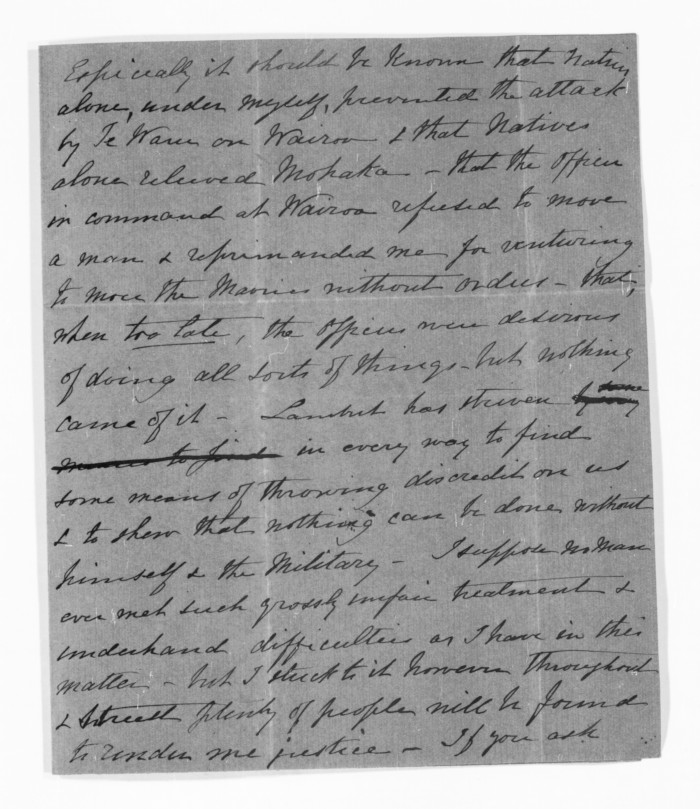 Especially it should be known that Natives
alone, under myself, prevented the attack
by Te Waru on Wairoa & that Natives
alone relieved Mohaka - that the Officer
in command at Wairoa refused to move
a man & reprimanded me for venturing
to move the Maories without orders - that,
when too late, the Officers were desirous
of doing all sorts of things - but nothing
came of it - Lambert has striven by some
means to find in every way to find
some means of throwing discredit on us
& to shew that nothing can be done without
himself & the Military - I suppose no man
ever met such grossly unfair treatment &
underhand difficulties as I have in this
matter - but I stuck to it however throughout
& plenty of people will be found
to render me justice - If you ask